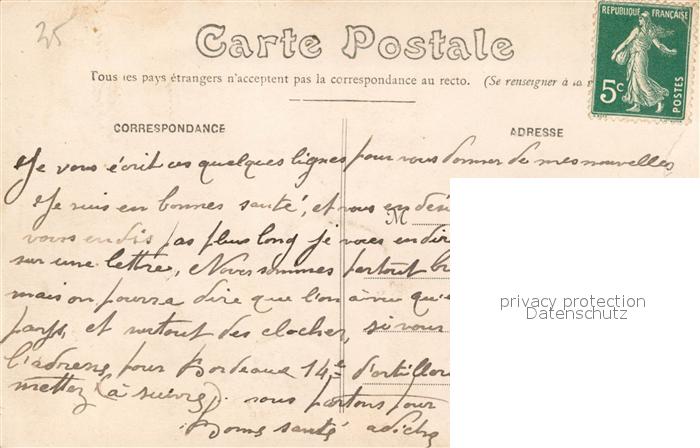 25
Carte Postale
Tous les pays étrangers n'acceptent pas la correspondance au recto. (Se renseigner à la
REPUBLIQUE FRANÇAISE
5c
POSTES
CORRESPONDANCE
ADRESSE
Je vous écrit ces quelques lignes pour vous donner de mes nouvelles
Je suis en bonnes santé, et vous en dési
M
vous en dis pas plus long je vous en dir
sur une lettre, Nous sommes partout
mais on pourra dire que l'on a vu qu'
pays, et surtout des clocher, si vous
l'adresse pour Bordeaux 14e d'artillerie
mettez (à suivre). nous partons pour
Bonne santé
privacy protection
Datenschutz